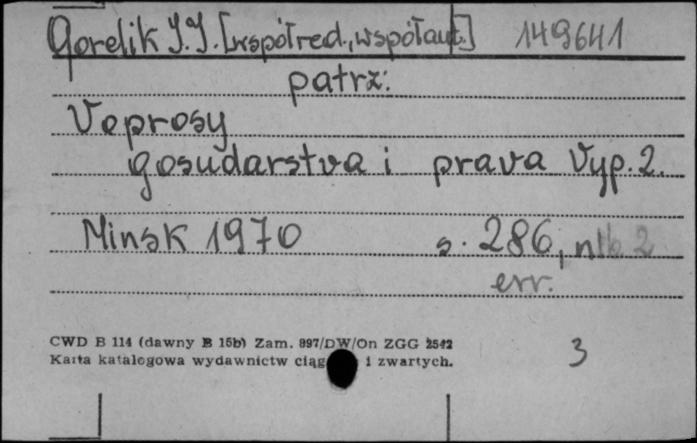 Gorelik I.I. [współred., współaut.] 149641
patrz:
Voprosy
gosudarstva i prava Vyp. 2.
Minsk 1970 s. 286, nlb 2
err.
CWD B 114 (dawny B 15b) Zam. 997/DW/On ZGG 2542
Karta katalogowa wydawnictw ciąg i zwartych.
3